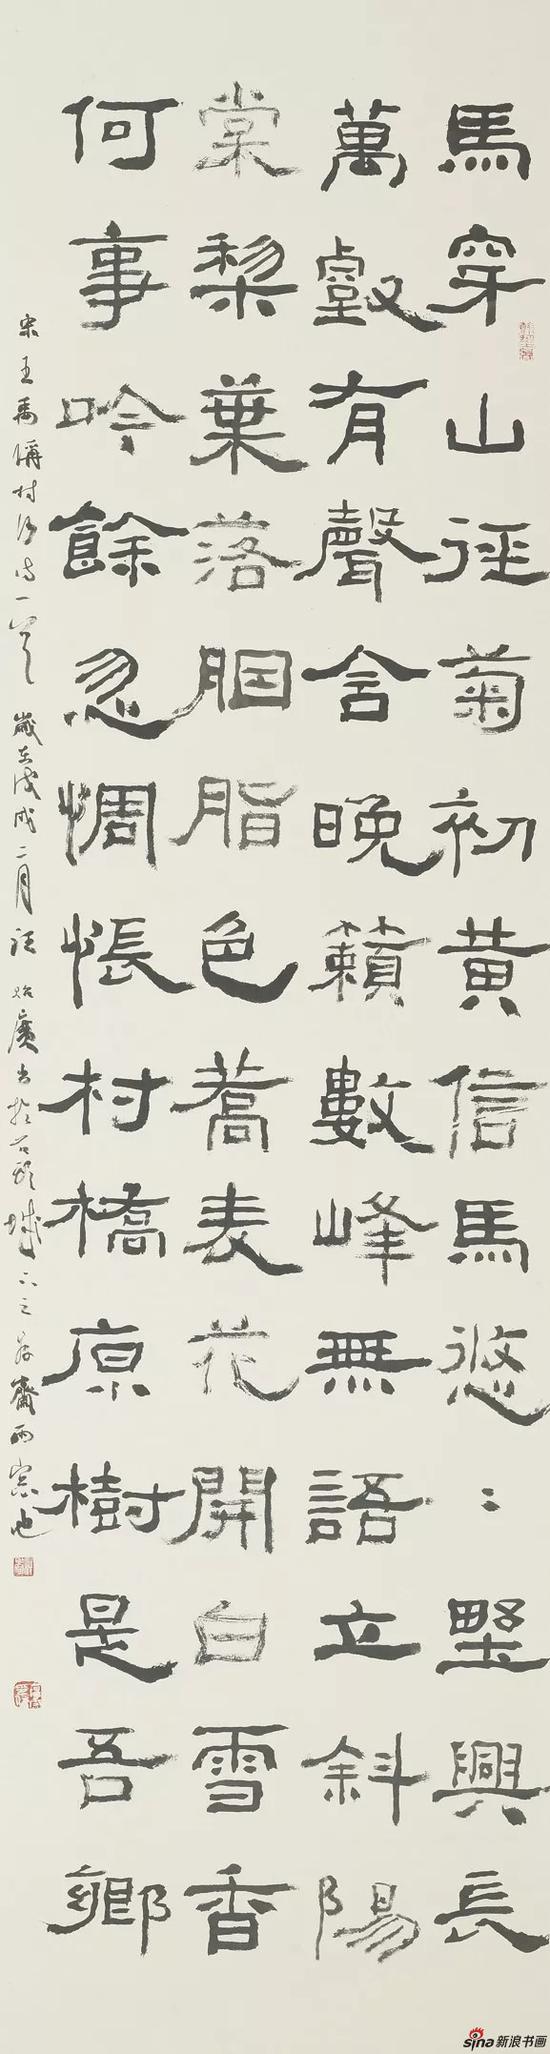 馬穿山徑菊初黄信馬悠〻野興長
萬壑有聲含晚籟數峰無語立斜陽
棠梨葉落胭脂色蕎麦花開白雪香
何事吟餘忽惆悵村橋原樹是吾鄉
宋王禹偁村行詩一首 歲在戊戌二月 汪 書於石頭城 齋雨窓也
sina新浪书画